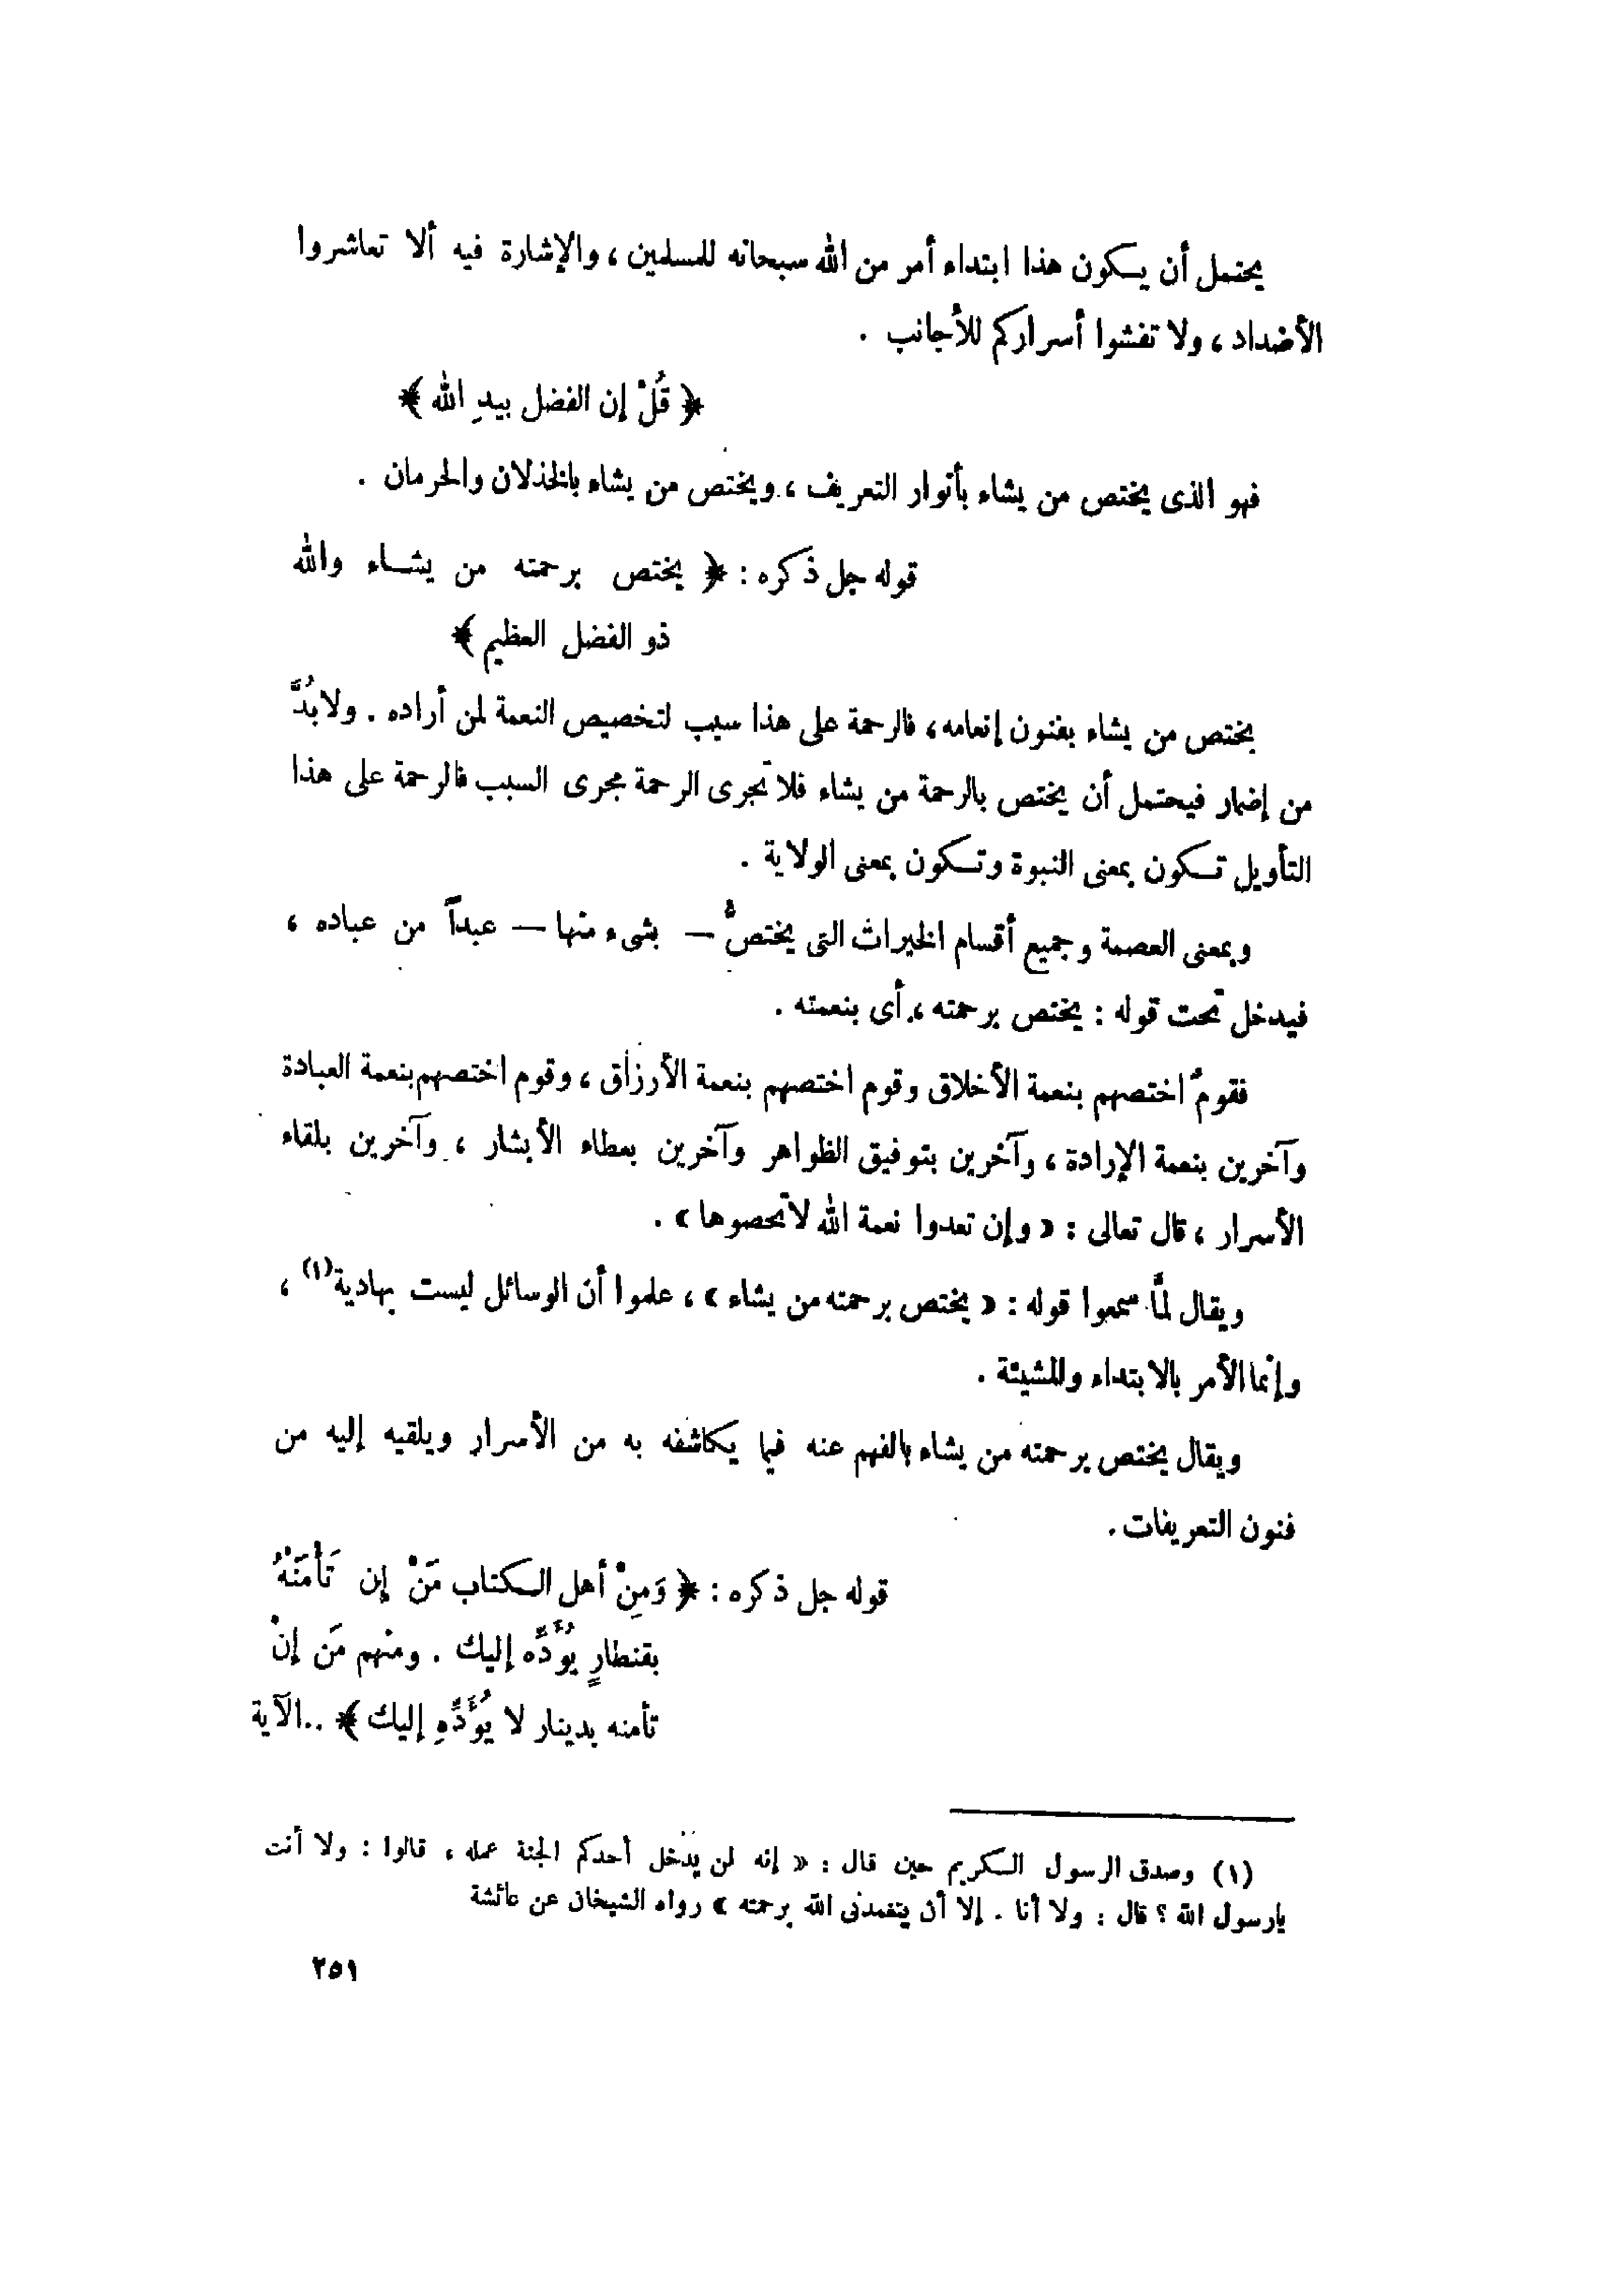 يحتمل أن يكون هذا ابتداء أمر من الله سبحانه للمسلمين ، والإشارة فيه ألا تعاشروا
الأضداد ، ولا تفشوا أسراركم للأجانب .
﴿ قُلْ إن الفضل بيدِ الله ﴾
فهو الذى يختص من يشاء بأنوار التعريف ، ويختص من يشاء بالخذلان والحرمان .
قوله جل ذكره : ﴿ يختص برحمته من يشاء والله
ذو الفضل العظيم ﴾
يختص من يشاء بفنون إنعامه ، فالرحمة على هذا سبب لتخصيص النعمة لمن أراده . ولابُدَّ
من إضمار فيحتمل أن يختص بالرحمة من يشاء فلا تجرى الرحمة مجرى السبب فالرحمة على هذا
التأويل تكون بمعنى النبوة وتكون بمعنى الولاية .
وبمعنى العصمة وجميع أقسام الخيرات التى يختصُّ — بشىء منها — عبداً من عباده ،
فيدخل تحت قوله : يختص برحمته ، أى بنعمته .
فقومٌ اختصهم بنعمة الأخلاق وقوم اختصهم بنعمة الأرزاق ، وقوم اختصهم بنعمة العبادة
وآخرين بنعمة الإرادة ، وآخرين بتوفيق الظواهر وآخرين بعطاء الأبشار ، وآخرين بلقاء
الأسرار ، قال تعالى : « وإن تعدوا نعمة الله لا تحصوها » .
ويقال لمَّا سمعوا قوله : « يختص برحمته من يشاء » ، علموا أن الوسائل ليست بهادية (١) ،
وإنما الأمر بالابتداء والمشيئة .
ويقال يختص برحمته من يشاء بالفهم عنه فيما يكاشفه به من الأسرار ويلقيه إليه من
فنون التعريفات .
قوله جل ذكره : ﴿ وَمِنْ أهل الكتاب مَنْ إن تَأْمَنْهُ
بقنطارٍ يُؤَدِّه إليك . ومنهم مَن إنْ
تأمنه بدينار لا يُؤَدِّهِ إليك ﴾ ..الآية
(١) وصدق الرسول الكريم حين قال : « إنه لن يدخل أحدكم الجنة عمله ، قالوا : ولا أنت
يارسول الله ؟ قال : ولا أنا . إلا أن يتغمدنى الله برحمته » رواه الشيخان عن عائشة
٢٥١